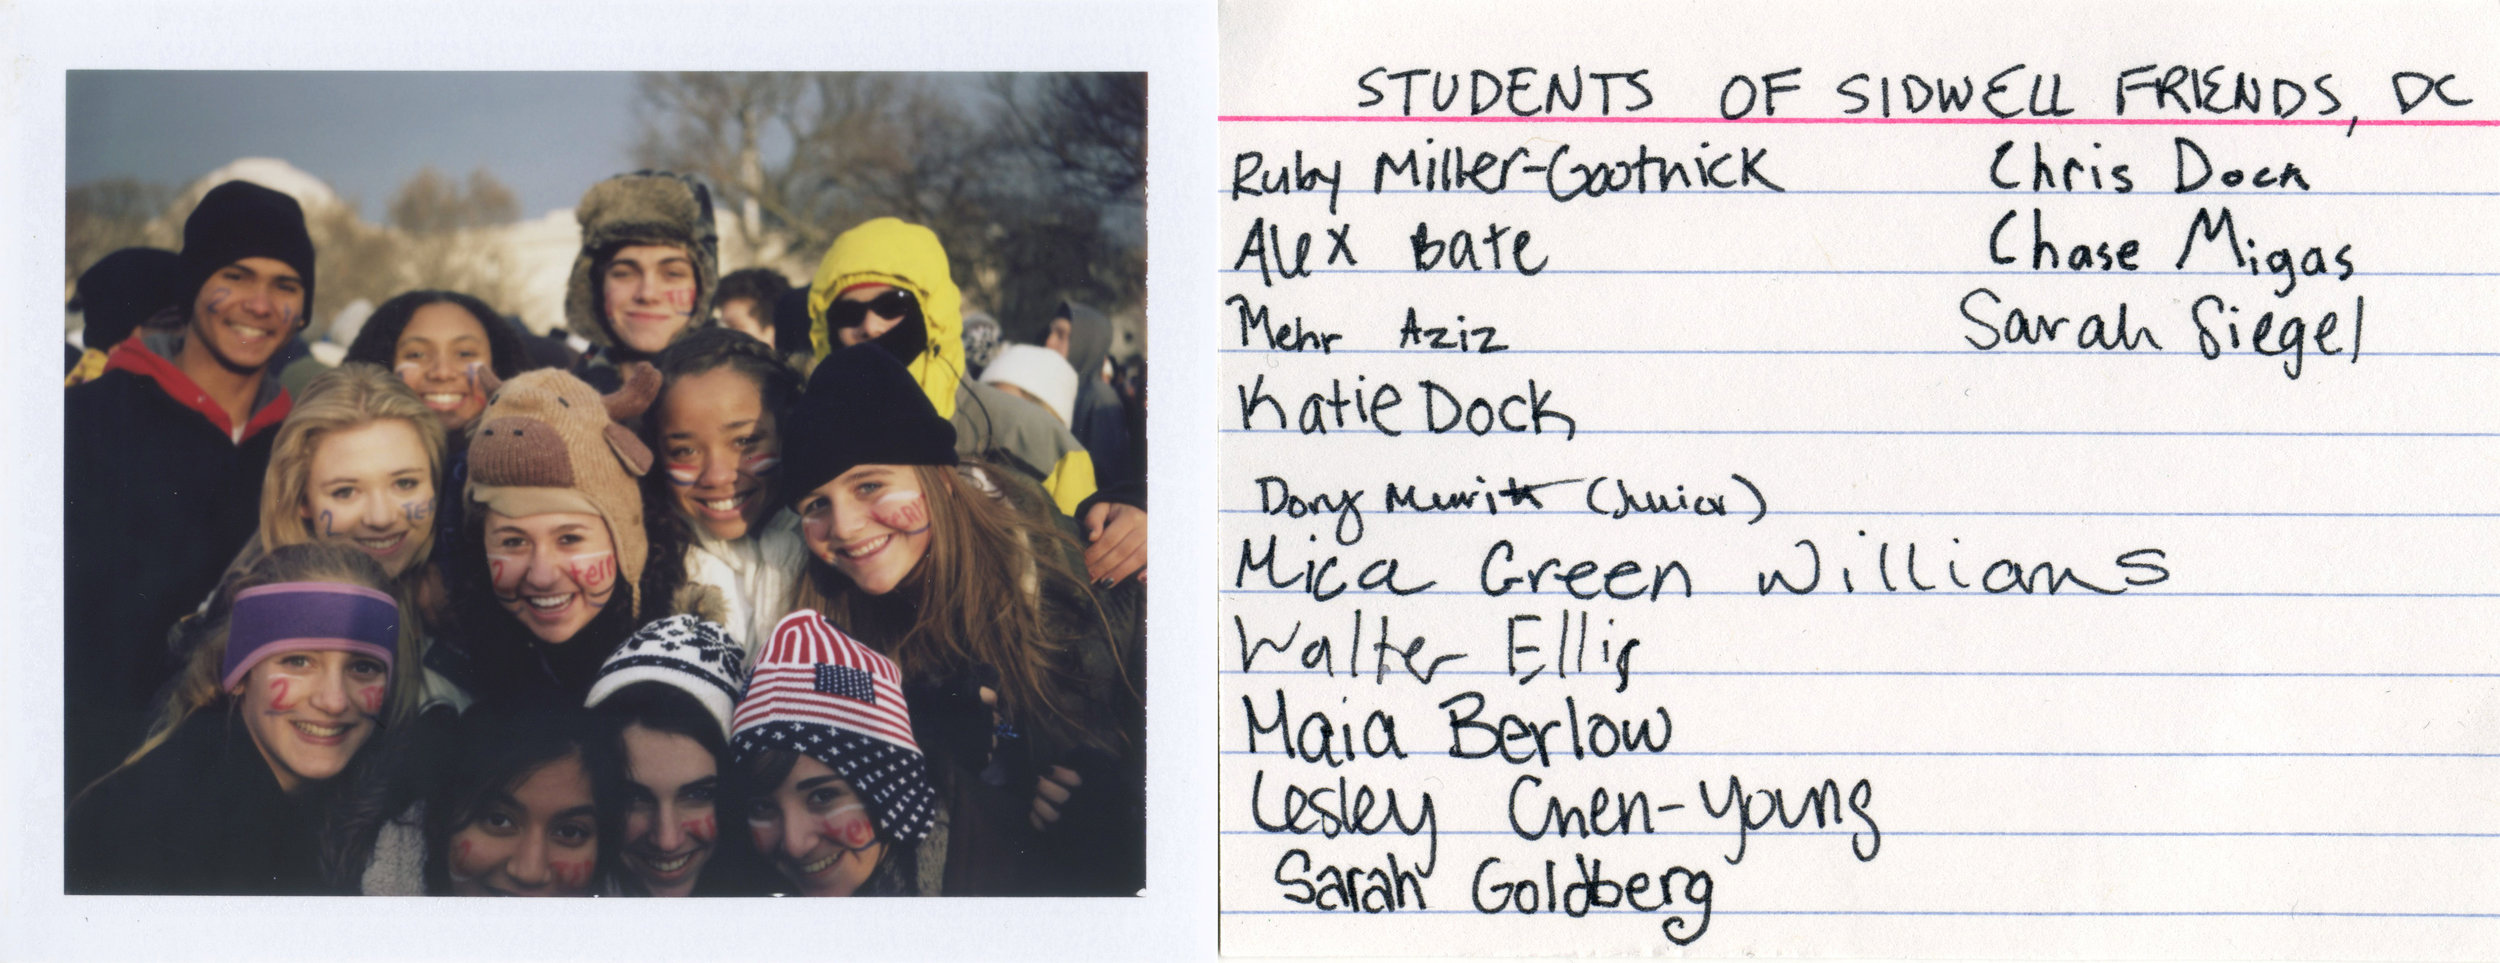 STUDENTS OF SIDWELL FRIENDS, DC
Ruby Miller-Gootnick
Alex Bate
Mehr Aziz
Katie Dock
Dory (Junior)
Mica Green Williams
Walter Ellis
Maia Berlow
Lesley Chen-Young
Sarah Goldberg
Chris Dock
Chase Migas
Sarah Siegel
2
TER
2
term
2